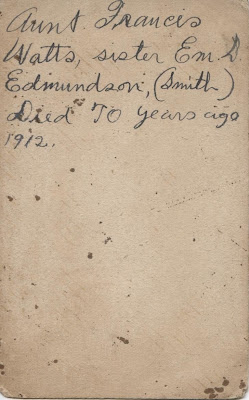 Aunt Francis
Watts, sister Em. D.
Edmundson, (Smith)
Died 70 years ago
1912.